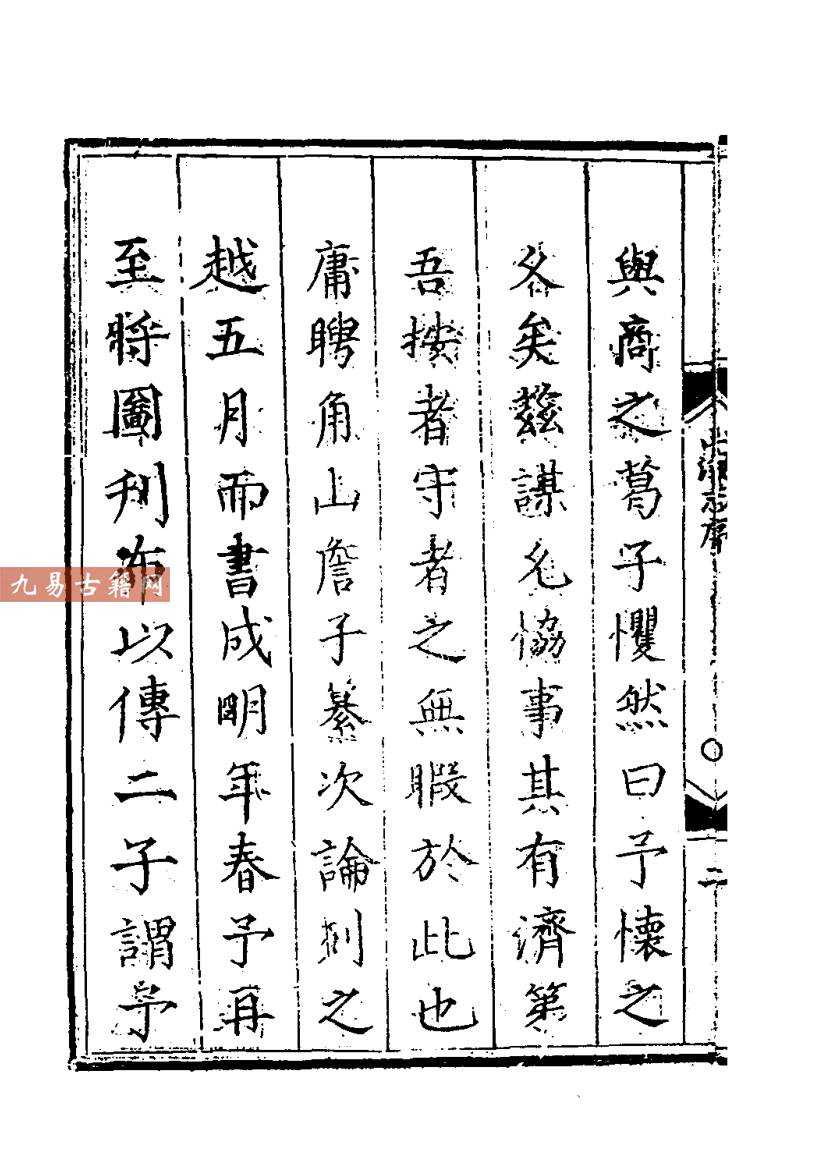 與商之葛子懼然曰予懷之
各矣茲謀允協事其有濟第
吾按者守者之無暇於此也
庸聘角山詹子纂次論割之
越五月而書成明年春予再
至將圖刋布以傳二子謂予
志序
二
九易古籍网